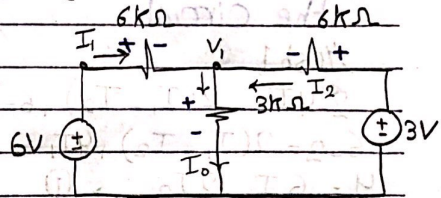 6KΩ 6KΩ
I₁ + - V₁ - +
I₂
+ 3KΩ
6V ± - ± 3V
I₀